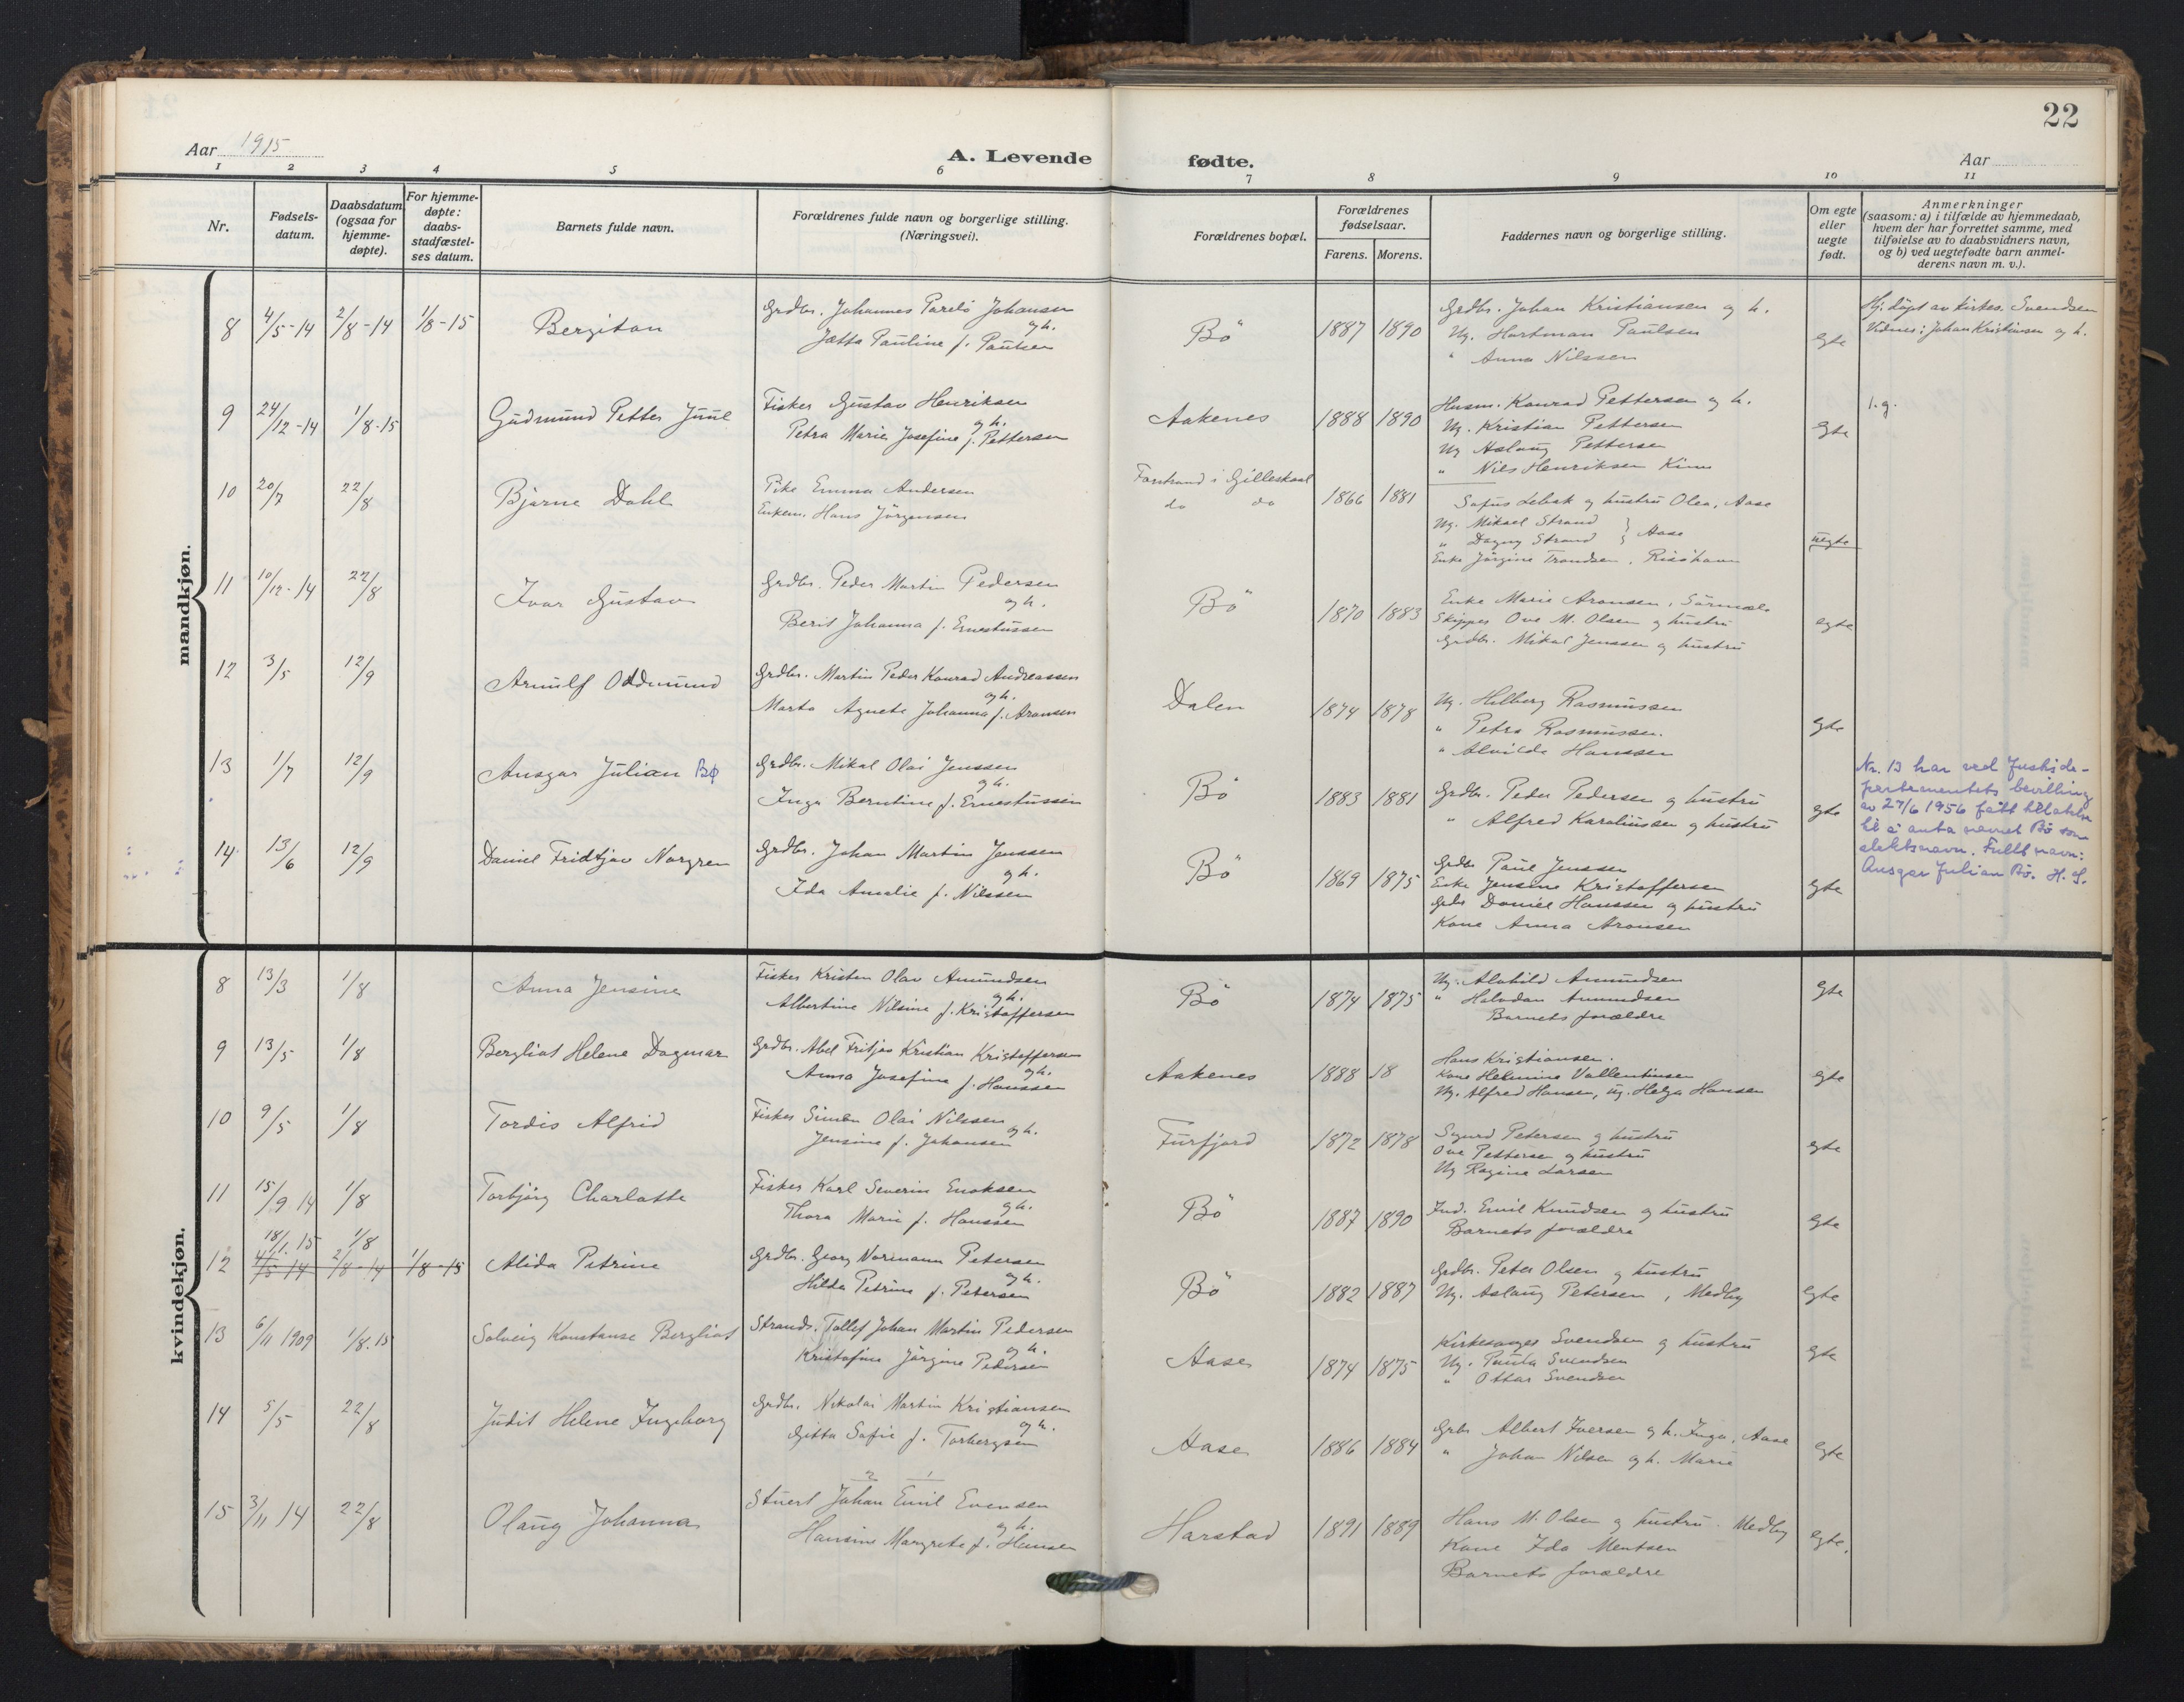 22
Aar 1915
A. Levende fødte.
Aar
1 2 3 4 5 6 7 8 9 10 11
Nr.
Fødsels-
datum.
Daabsdatum
(ogsaa for
hjemme-
døpte).
For hjemme-
døpte:
daabs-
stadfæstel-
ses datum.
Barnets fulde navn.
Forældrenes fulde navn og borgerlige stilling.
(Næringsvei).
Forældrenes bopæl.
Forældrenes
fødselsaar.
Farens. Morens.
Faddernes navn og borgerlige stilling.
Om egte
eller
uegte
født.
Anmerkninger
(saasom: a) i tilfælde av hjemmedaab,
hvem der har forrettet samme, med
tilføielse av to daabsvidners navn,
og b) ved uegtefødte barn anmel-
derens navn m. v.).
mandkjøn.
8 4/5-14 2/8-14 1/8-15 Bergiton
Grdbr. Johannes Parelö Johansen
og h.
Jætta Pauline f. Paulsen
Bö 1887 1890
Grdbr. Johan Kristiansen og h.
Ug. Hartman Paulsen
" Anna Nilssen
egte
Hj. döpt av kirkes. Svendsen
Vidner: Johan Kristiansen og h.
9 24/12-14 1/8-15 Gudmund Petter Juul
Fisker Gustav Henriksen
og h.
Petra Marie Josefine f. Pettersen
Aakenes 1888 1890
Husm. Konrad Pettersen og h.
Ug. Kristian Pettersen
Ug Aslaug Pettersen
" Nils Henriksen Kinn
egte
1. g.
10 20/7 22/8 Bjarne Dahl
Pike Emma Andersen
Enkem. Hans Jörgensen
Forstrand i Gilleskaal
do do
1866 1881
Sofus Lebak og hustru Olea, Aase
Ug. Mikael Strand
" Dagny Strand } Aase
Enke Jörgine Trondsen, Risöhavn
uegte
11 10/12-14 22/8 Ivar Gustav
Grdbr. Peder Martin Pedersen
og h.
Berit Johanna f. Ernestussen
Bö 1870 1883
Enke Marie Aronsen,
Skipper Ove M. Olsen og hustru
Grdbr. Mikal Jenssen og hustru
egte
12 3/5 12/9 Arnulf Oddmund
Grdbr. Martin Peder Konrad Andreassen
og h.
Marta Agnete Johanna f. Aronsen
Dalen 1874 1878
Ug. Hilberg Rasmussen
" Petra Rasmussen.
" Alvilde Hanssen
egte
13 1/7 12/9 Ansgar Julian Bø
Grdbr. Mikal Olai Jenssen
og h.
Inga Berntine f. Ernestussen
Bö 1883 1881
Grdbr. Peder Pedersen og hustru
" Alfred Karoliussen og hustru
egte
Nr. 13 har ved Justisde-
partementets bevilling
av 27/6 1956 fått tillatelse
til å anta navnet Bø som
slektsnavn. Fullt navn:
Ansgar Julian Bø. H. S.
14 13/6 12/9 Daniel Fridtjov Norgren
Grdbr. Johan Martin Jenssen
og h.
Ida Amalie f. Nilssen
Bö 1869 1875
Grdbr Paul Jenssen
Enke Jensine Kristoffersen
Grbr Daniel Hanssen og hustru
Kone Anna Aronsen
egte
kvindekjøn.
8 13/3 1/8 Anna Jensine
Fisker Kristen Olav Amundsen
og h.
Albertine Nilsine f. Kristoffersen
Bö 1874 1875
Ug. Alvhild Amundsen
" Halvdan Amundsen
Barnets forældre
egte
9 13/5 1/8 Bergliot Helene Dagmar
Grdbr. Abel Fritjov Kristian Kristoffersen
og h.
Anna Josefine f. Hanssen
Aakenes 1888 18
Hans Kristiansen.
Kone Helmine Vallentinsen
Ug. Alfred Hansen, ug. Helga Hansen
egte
10 9/5 1/8 Tordis Alfrid
Fisker Simon Olai Nilssen
og h.
Jensine f. Johansen
Furfjord 1872 1878
Sigurd Petersen og hustru
Ove Pettersen og hustru
Ug Ragine Larsen
egte
11 15/9 14 1/8 Torbjörg Charlotte
Fisker Karl Severin Enoksen
og h.
Thora Marie f. Hanssen
Bö 1887 1890
Ind. Emil Knudsen og hustru
Barnets forældre
egte
18/1. 15 1/8
12 4/5 14 2/8-14 1/8-15 Alida Petrine
Grdbr. Georg Normann Petersen
og h.
Hilda Petrine f. Petersen
Bö 1882 1887
Grdbr. Peter Olsen og hustru
Ug. Aslaug Petersen, Medby
egte
13 6/11 1909 1/8.15 Solveig Konstanse Bergliot
Strands. Tollef Johan Martin Pedersen
og h.
Kristofine Jörgine Pedersen
Aase 1874 1875
Kirkesanger Svendsen og hustru
Ug. Paula Svendsen
" Ottar Svendsen
egte
14 5/5 22/8 Judit Helene Ingeborg
Grdbr. Nikolai Martin Kristiansen
og h.
Gitta Sofie f. Torbergsen
Aase 1886 1884
Grbr Albert Iversen og h. Inga, Aase
" Johan Nilsen og h. Marie
egte
15 3/11 14 22/8 Olaug Johanna
2 1
Stuert Johan Emil Evensen
og h.
Hansine Margrete f. Hansen
Harstad 1891 1889
Hans M. Olsen og hustru. Medby
Kone Ida Mentsen
Barnets forældre
egte.